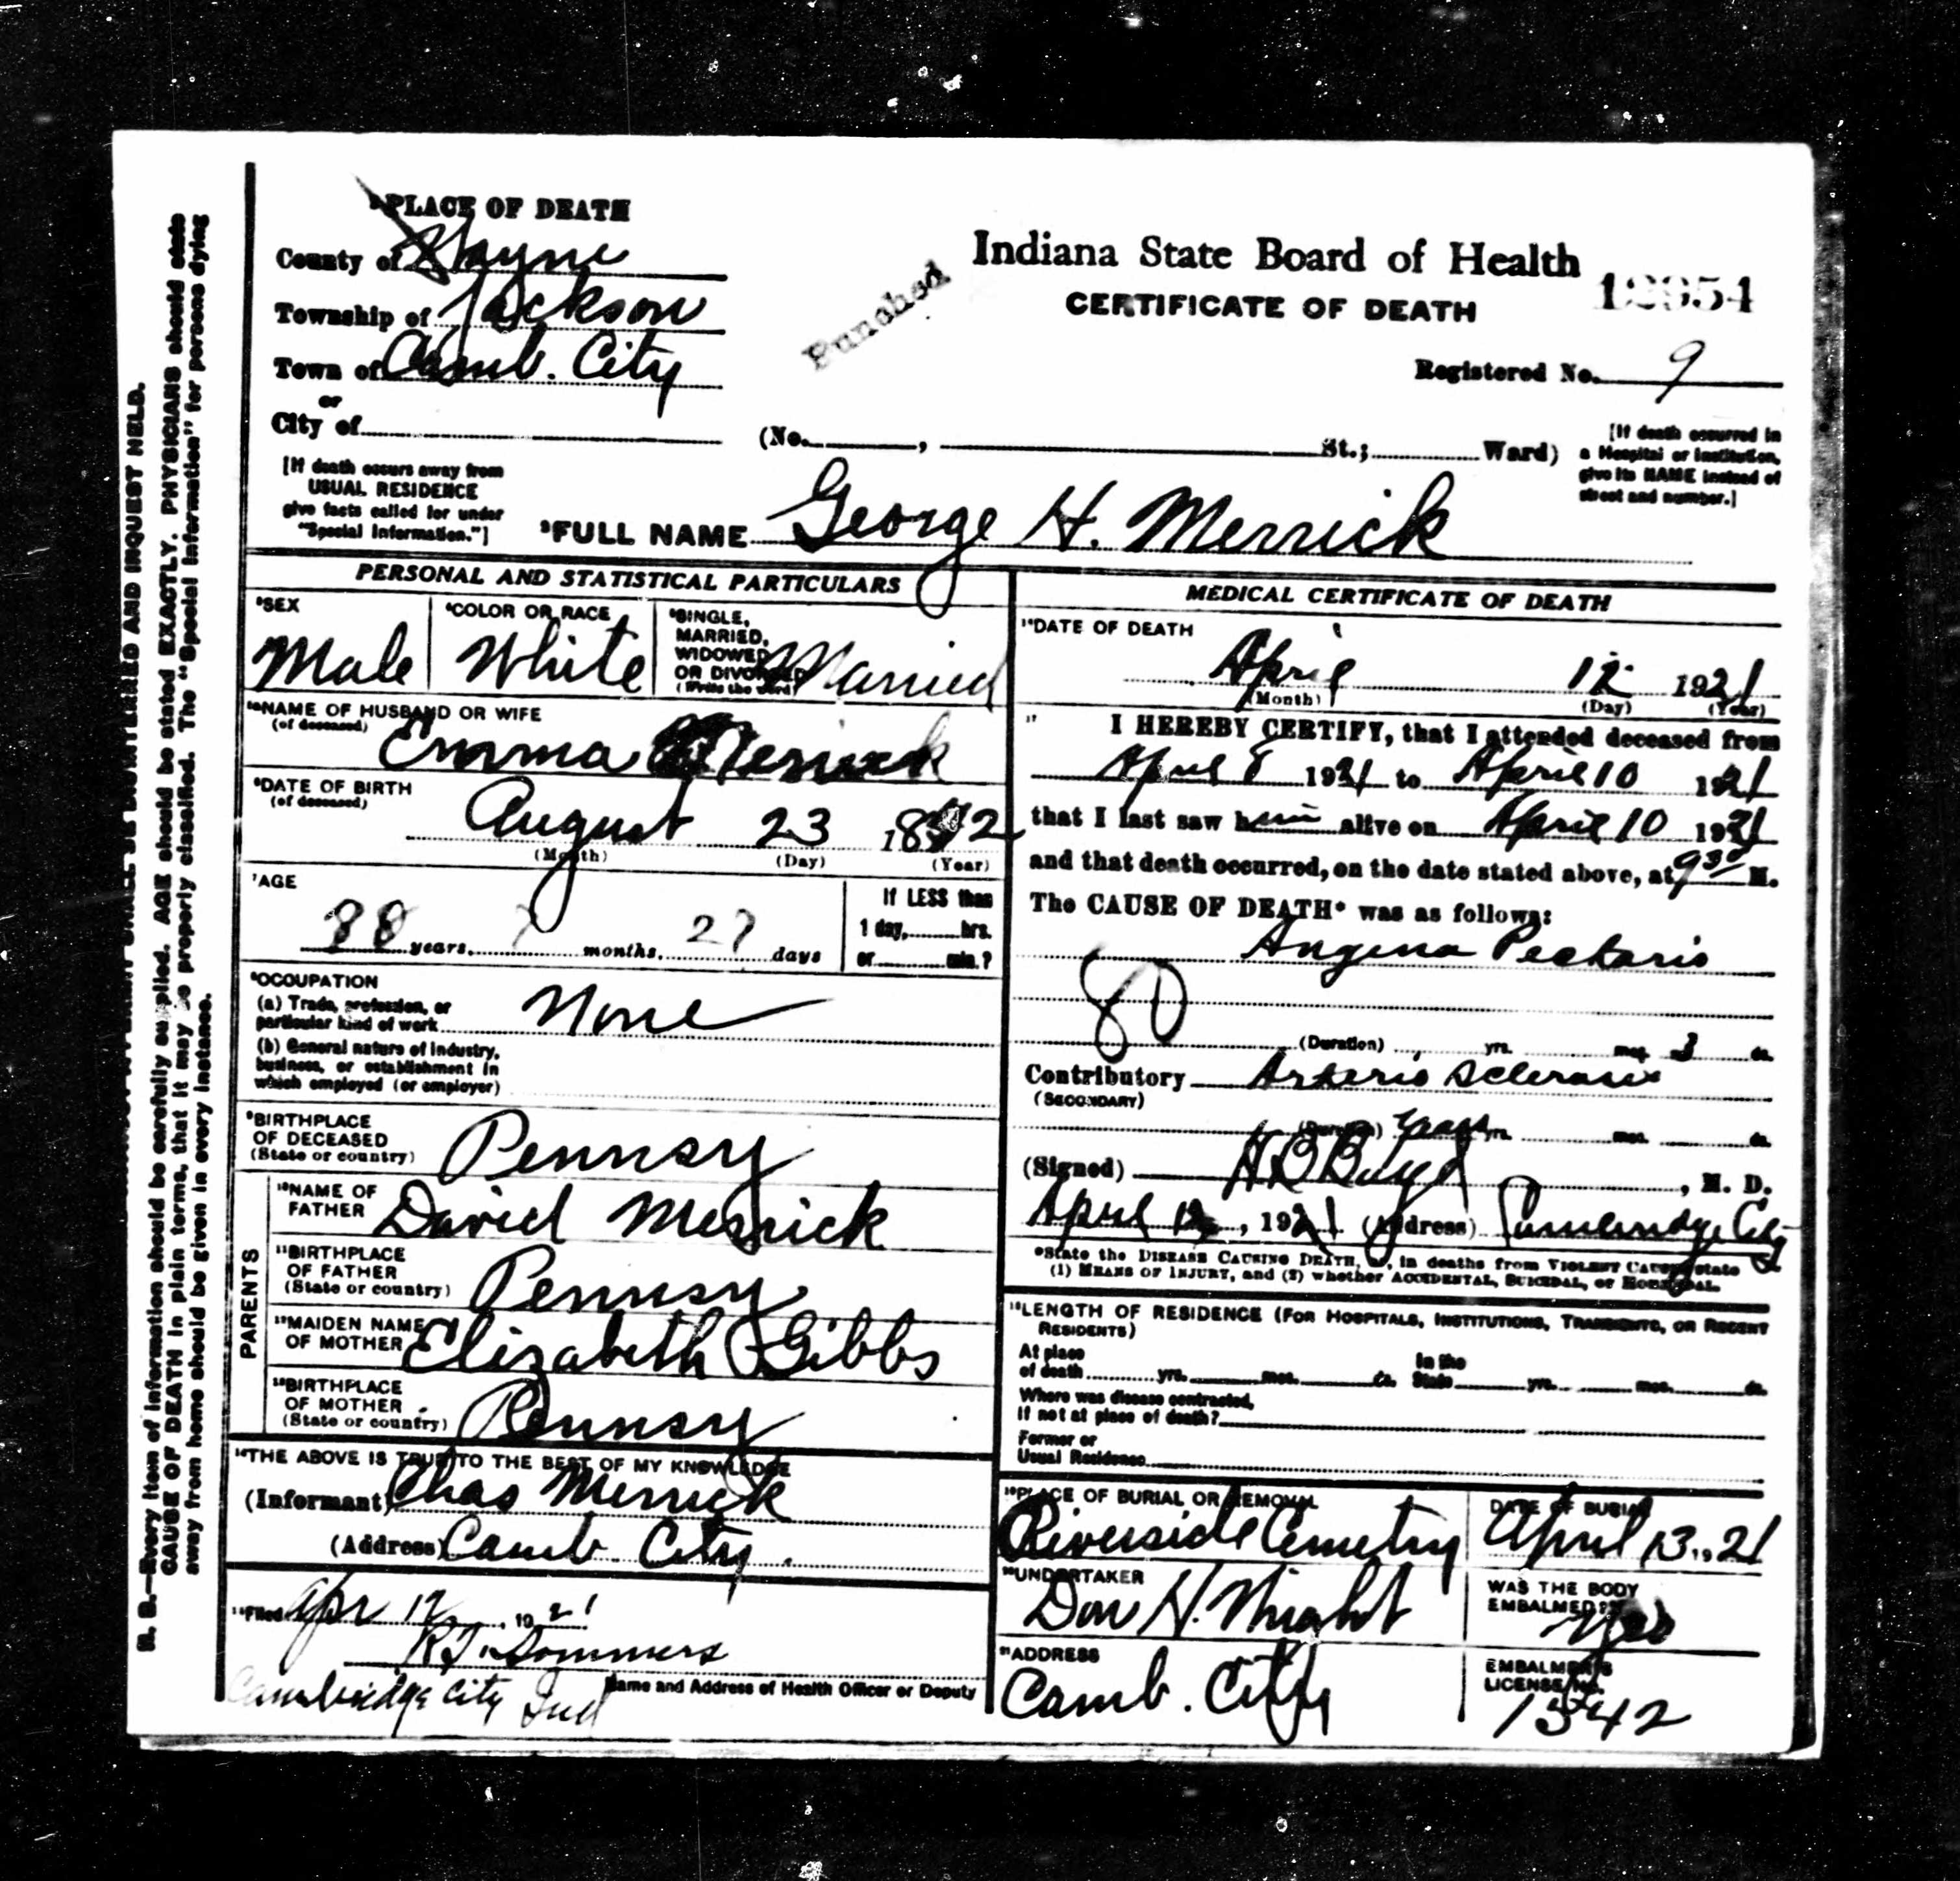 PLACE OF DEATH
County of Wayne
Township of Jackson
Town of Camb. City
or
City of
[If death occurs away from
USUAL RESIDENCE
give facts called for under
"Special Information."]
Punched
Indiana State Board of Health
CERTIFICATE OF DEATH
Registered No. 9
(No. , St.; Ward)
[If death occurred in
a Hospital or Institution,
give its NAME instead of
street and number.]
FULL NAME George H. Merrick
PERSONAL AND STATISTICAL PARTICULARS
SEX
Male
COLOR OR RACE
White
SINGLE,
MARRIED,
WIDOWED
OR DIVORCED
(Write the word)
Married
NAME OF HUSBAND OR WIFE
(of deceased)
Emma Merrick
DATE OF BIRTH
(of deceased)
August 23
(Month) (Day) (Year)
AGE
88 years, months, days
If LESS than
1 day, hrs.
or min.?
OCCUPATION
(a) Trade, profession, or
particular kind of work None
(b) General nature of industry,
business, or establishment in
which employed (or employer)
BIRTHPLACE
OF DECEASED
(State or country)
Pennsy
PARENTS
NAME OF
FATHER David Merrick
BIRTHPLACE
OF FATHER
(State or country) Pennsy
MAIDEN NAME
OF MOTHER Elizabeth Gibbs
BIRTHPLACE
OF MOTHER
(State or country) Pennsy
THE ABOVE IS TRUE TO THE BEST OF MY KNOWLEDGE
(Informant) Chas Merrick
(Address) Camb. City.
Filed Apr 12, 1921
Sommers
Cambridge City Ind
Name and Address of Health Officer or Deputy
MEDICAL CERTIFICATE OF DEATH
DATE OF DEATH
April 12 1921
(Month) (Day) (Year)
17 I HEREBY CERTIFY, that I attended deceased from
April 8 1921 to April 10 1921
that I last saw him alive on April 10 1921
and that death occurred, on the date stated above, at 9 30 M.
The CAUSE OF DEATH* was as follows:
Angina Pectoris
80
(Duration) yrs. mos. 3 ds.
Contributory Arterio Sclerosis
(SECONDARY)
(Duration) years yrs. mos. ds.
(Signed) H B Boyd, M. D.
April 12, 1921 (Address) Cambridge City
*State the DISEASE CAUSING DEATH, or, in deaths from VIOLENT CAUSES, state
(1) MEANS OF INJURY, and (2) whether ACCIDENTAL, SUICIDAL, or HOMICIDAL.
LENGTH OF RESIDENCE (FOR HOSPITALS, INSTITUTIONS, TRANSIENTS, OR RECENT
RESIDENTS)
At place
of death yrs. mos. ds.
In the
State yrs. mos. ds.
Where was disease contracted,
if not at place of death?
Former or
Usual Residence
PLACE OF BURIAL OR REMOVAL
Riverside Cemetry
DATE OF BURIAL
April 13, 21
UNDERTAKER
Don H. Wright
WAS THE BODY
EMBALMED?
Yes
ADDRESS
Camb. City
EMBALMER'S
LICENSE NO.
1542
N. B.—Every item of information should be carefully supplied. AGE should be stated EXACTLY. PHYSICIANS should state
CAUSE OF DEATH in plain terms, that it may be properly classified. The "Special Information" for persons dying
away from home should be given in every instance.